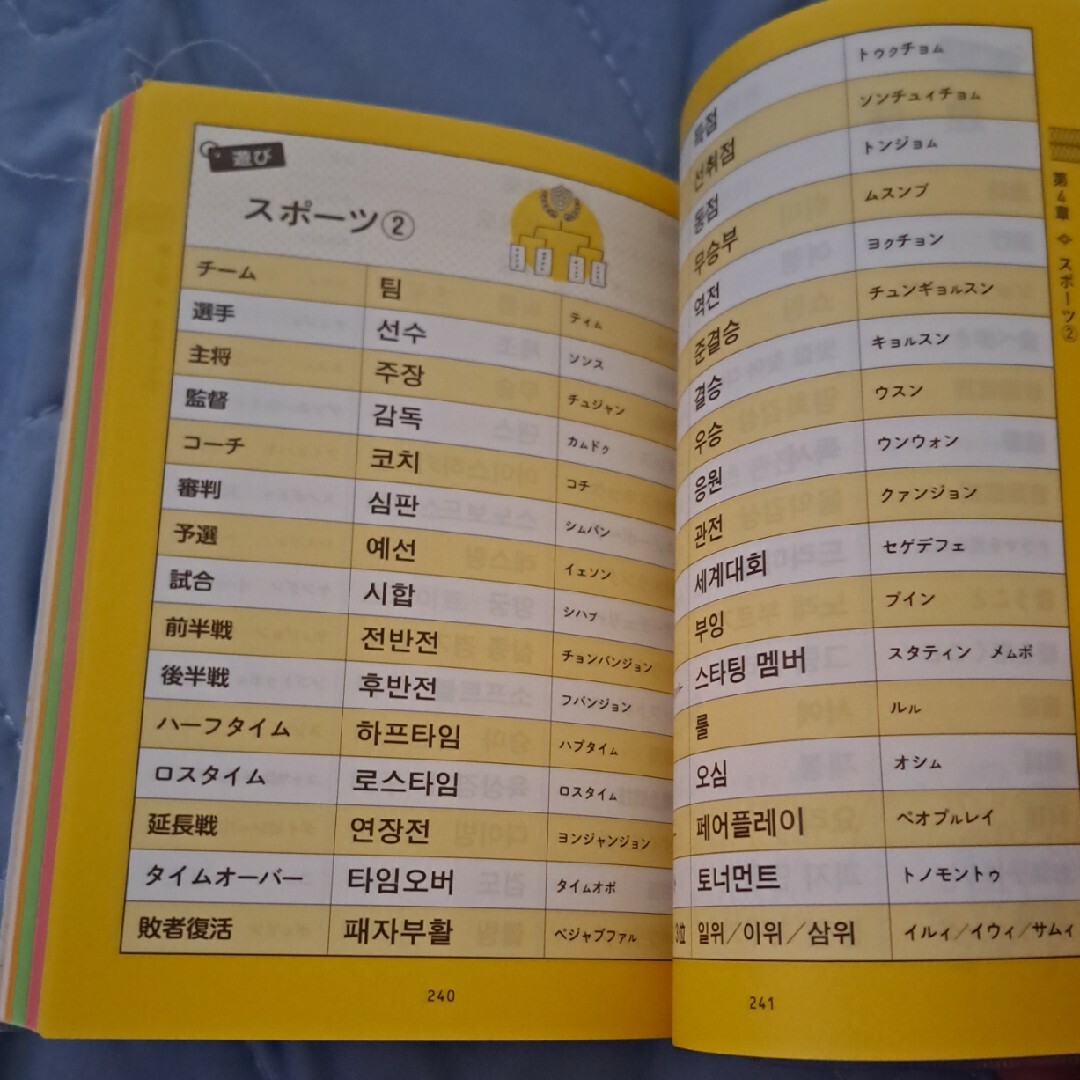 遊び
スポーツ②
チーム 팀 ティム
選手 선수 ソンス
主将 주장 チュジャン
監督 감독 カムドゥ
コーチ 코치 コチ
審判 심판 シムパン
予選 예선 イェソン
試合 시합 シハプ
前半戦 전반전 チョンバンジョン
後半戦 후반전 フバンジョン
ハーフタイム 하프타임 ハプタイム
ロスタイム 로스타임 ロスタイム
延長戦 연장전 ヨンジャンジョン
タイムオーバー 타임오버 タイムオボ
敗者復活 패자부활 ペジャブファル
240
득점 トゥクチョム
선취점 ソンチュィチョム
동점 トンジョム
무승부 ムスンブ
역전 ヨクチョン
준결승 チュンギョルスン
결승 キョルスン
우승 ウスン
응원 ウンウォン
관전 クァンジョン
세계대회 セゲデフェ
부잉 ブイン
스타팅 멤버 スタティン メムボ
룰 ルル
오심 オシム
페어플레이 ペオプルレイ
토너먼트 トノモントゥ
3位 일위/이위/삼위 イルィ/イウィ/サムィ
241
第4章 スポーツ②